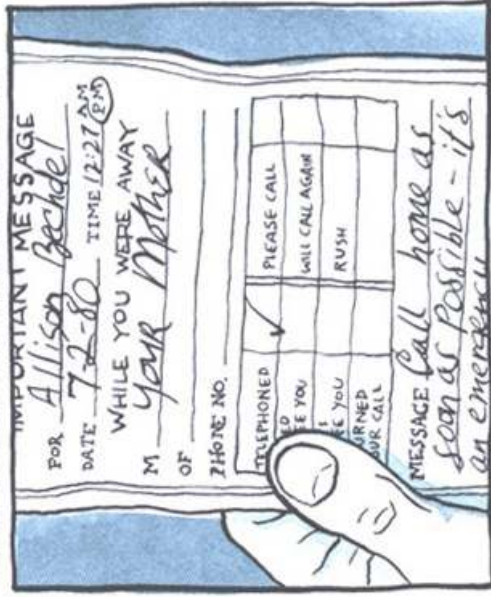 IMPORTANT MESSAGE
FOR Allison Bechdel
DATE 7-2-80 TIME 12:27 AM PM
WHILE YOU WERE AWAY
M Your Mother
OF
PHONE NO.
TELEPHONED ✓ PLEASE CALL
ED
EE YOU WILL CALL AGAIN
S
EE YOU RUSH
URNED
OUR CALL
MESSAGE Call home as
soon as possible - it's
an emergency